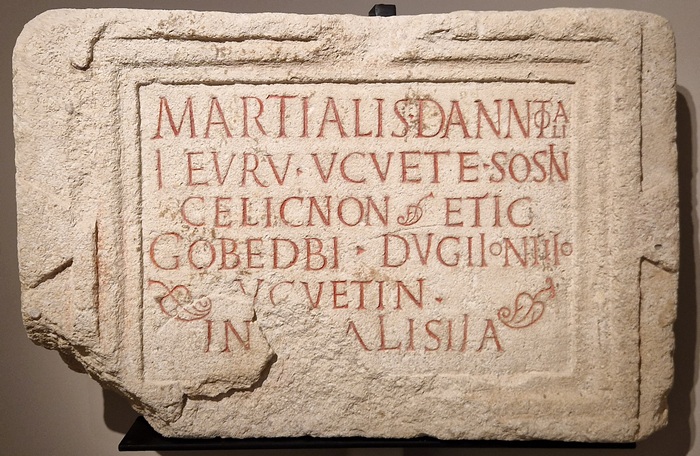 MARTIALIS DANNOTALI
IEVRV · VCVETE · SOSIN
CELICNON ❧ ETIC
GOBEDBI · DVGIIONTIIO
❧ VCVETIN ·
IN ALISIIA ❧